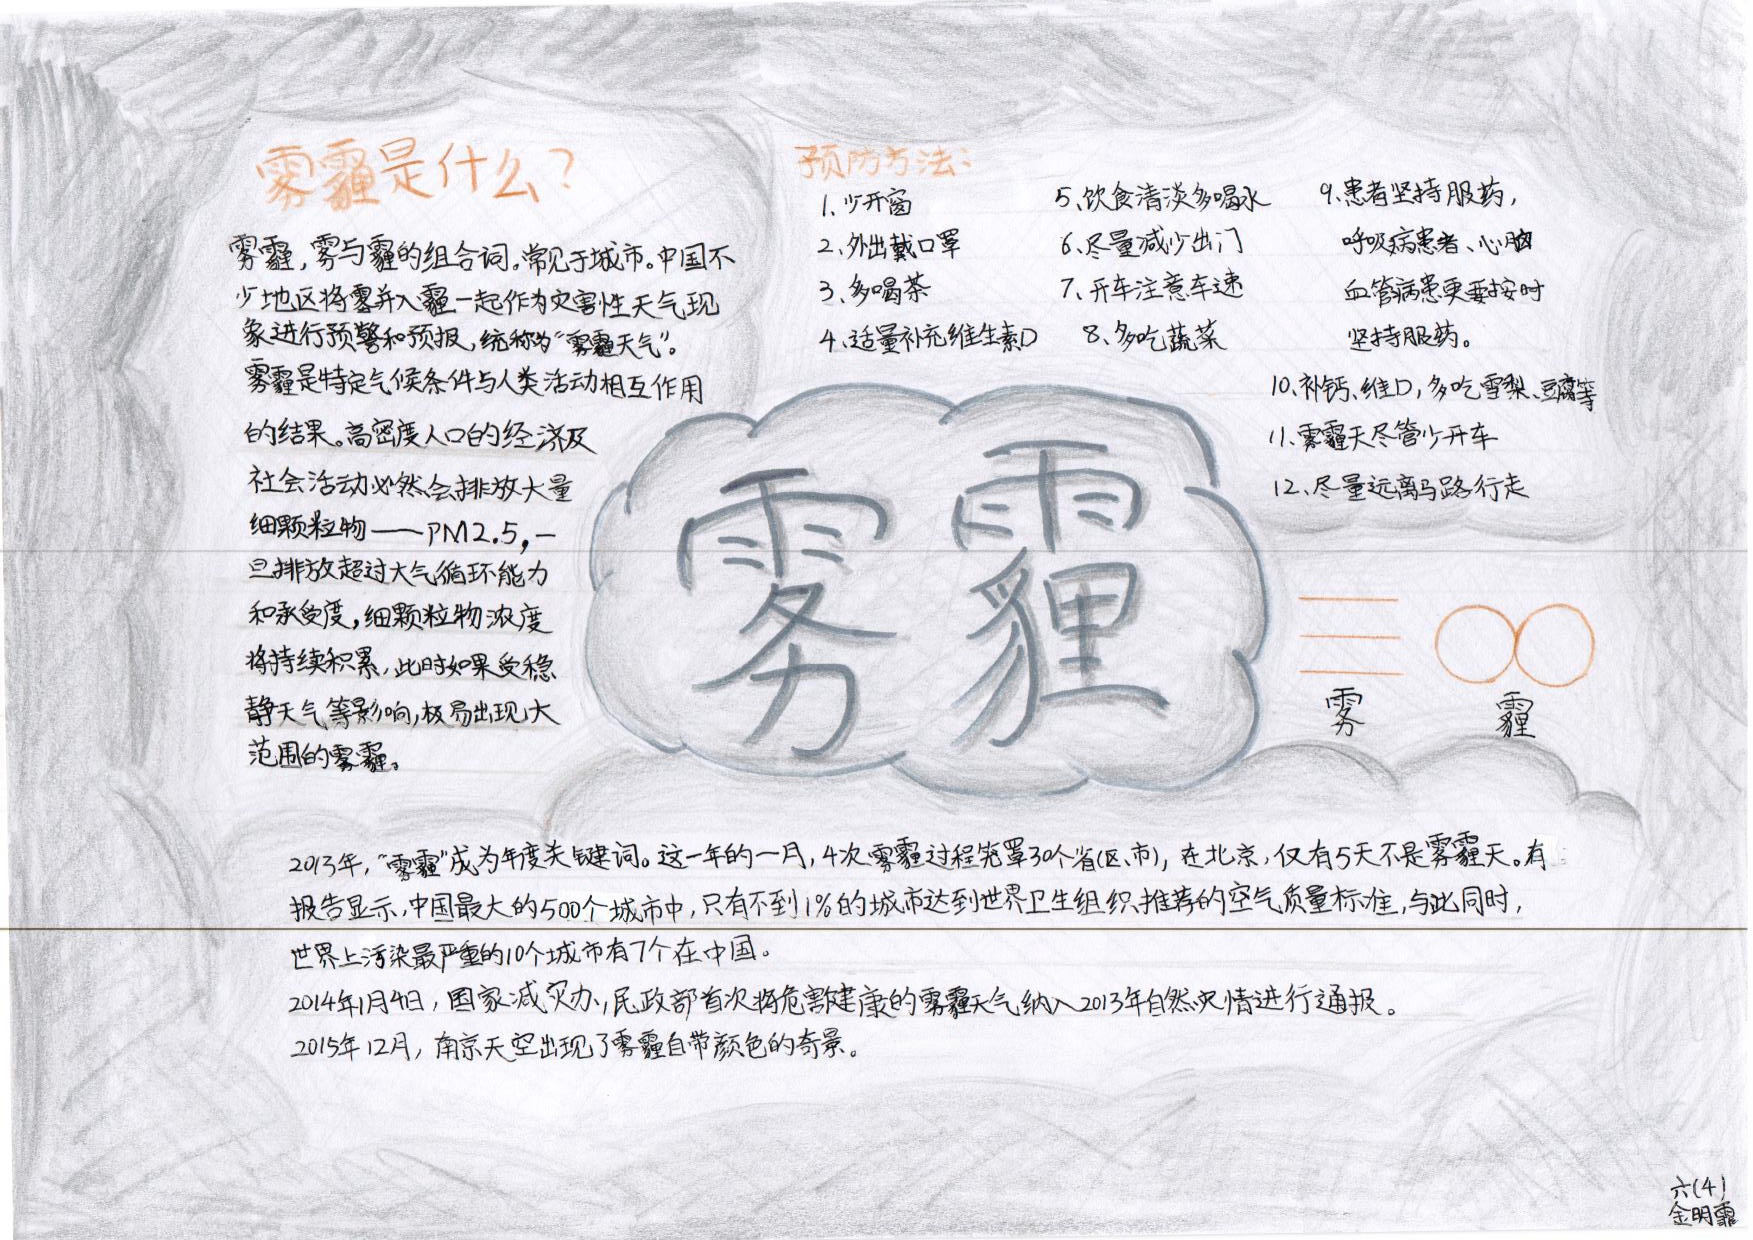 雾霾是什么？
雾霾，雾与霾的组合词。常见于城市。中国不
少地区将雾并入霾一起作为灾害性天气现
象进行预警和预报，统称为“雾霾天气”。
雾霾是特定气候条件与人类活动相互作用
的结果。高密度人口的经济及
社会活动必然会排放大量
细颗粒物——PM2.5，一
旦排放超过大气循环能力
和承受度，细颗粒物浓度
将持续积累，此时如果受稳
静天气等影响，极易出现大
范围的雾霾。
预防方法：
1、少开窗
2、外出戴口罩
3、多喝茶
4、适量补充维生素D
5、饮食清淡多喝水
6、尽量减少出门
7、开车注意车速
8、多吃蔬菜
9、患者坚持服药，
呼吸病患者、心脑
血管病患更要按时
坚持服药。
10、补钙、维D，多吃雪梨、豆腐等
11、雾霾天尽管少开车
12、尽量远离马路行走
雾霾
雾
霾
2013年，“雾霾”成为年度关键词。这一年的一月，4次雾霾过程笼罩30个省(区、市)，在北京，仅有5天不是雾霾天。有
报告显示，中国最大的500个城市中，只有不到1%的城市达到世界卫生组织推荐的空气质量标准，与此同时，
世界上污染最严重的10个城市有7个在中国。
2014年1月4日，国家减灾办，民政部首次将危害健康的雾霾天气纳入2013年自然灾情进行通报。
2015年12月，南京天空出现了雾霾自带颜色的奇景。
六(4)
金明霏